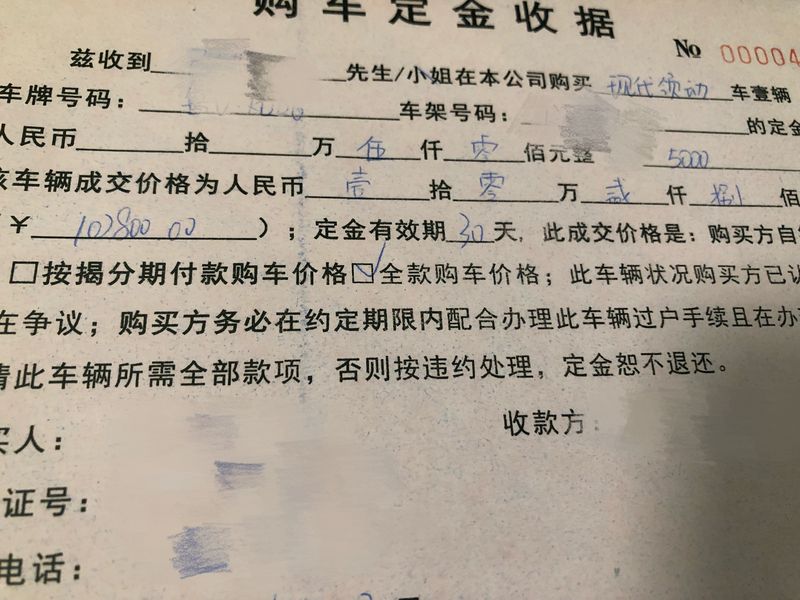 购车定金收据
No 00004
兹收到 先生/小姐在本公司购买 现代领动 车壹辆
车牌号码： 车架号码： 的定金
人民币 拾 万 伍 仟 零 佰元整 5000
该车辆成交价格为人民币 壹 拾 零 万 贰 仟 捌 佰
（￥ 102800 00 ）；定金有效期 30 天，此成交价格是：购买方自
□按揭分期付款购车价格☑全款购车价格；此车辆状况购买方已认
在争议；购买方务必在约定期限内配合办理此车辆过户手续且在办
请此车辆所需全部款项，否则按违约处理，定金恕不退还。
买人： 收款方：
证号：
电话：